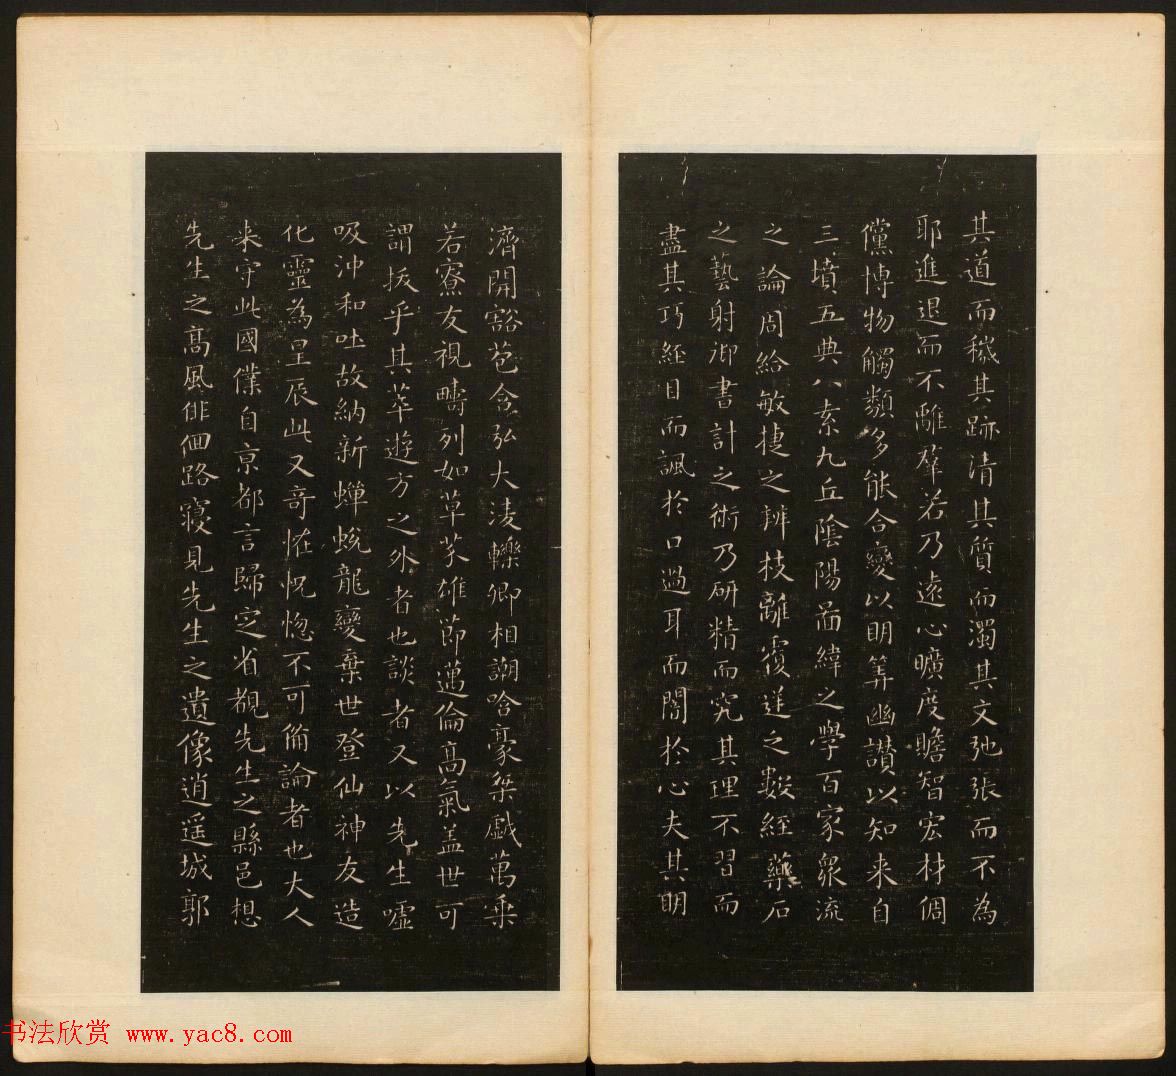 其道而穢其跡清其質而濁其文弛張而不為
耶進退而不離羣若乃遠心曠度贍智宏材倜
儻博物觸類多能合變以明筭幽讃以知来自
三墳五典八索九丘陰陽啚緯之學百家衆流
之論周給敏捷之辨枝離覆逆之數經藥石
之藝射御書計之術乃研精而究其理不習而
盡其巧經目而諷於口過耳而闇於心夫其明
濟開豁苞含弘大淩轢卿相謿哈豪桀戲萬乗
若寮友視疇列如草芥雄節邁倫高氣盖世可
謂拔乎其萃遊方之外者也談者又以先生嘘
吸沖和吐故納新蟬蛻龍變棄世登仙神友造
化靈為星辰此又奇恠怳惚不可備論者也大人
来守此國僕自京都言歸定省覩先生之縣邑想
先生之高風俳佪路寢見先生之遺像逍遥城郭
书法欣赏 www.yac8.com